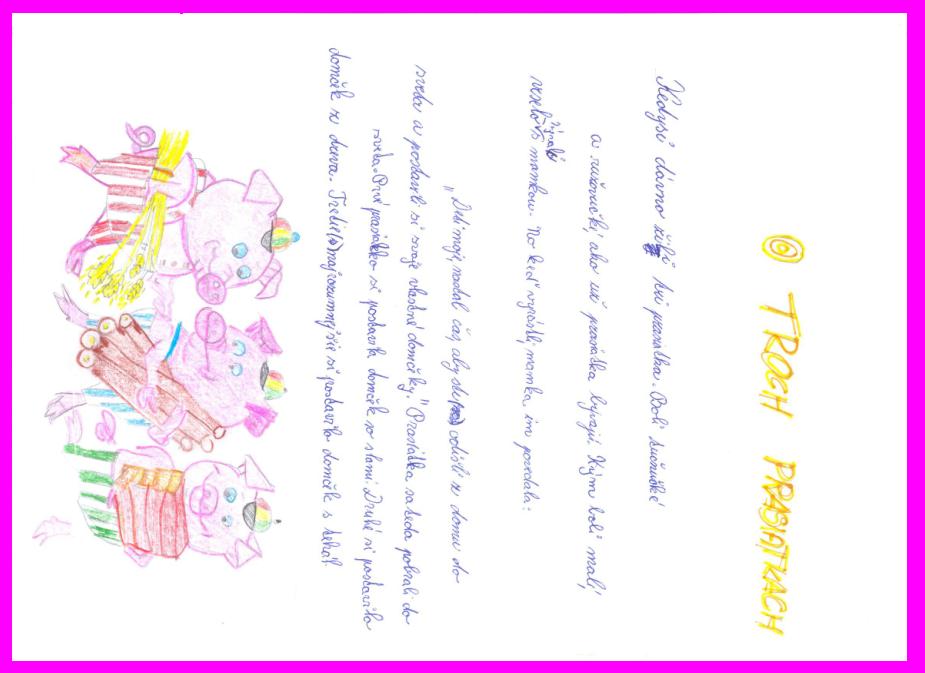 O TROCH PRASIATKACH
Kedysi dávno žili tri prasiatka. Boli tučnučké
a ružovučké, ako už prasiatka bývajú. Kým boli malí,
žijali
veselo s mamkou. No keď vyrástli, mamka im povedala:
"Deti moje, nastal čas, aby ste odišli z domu do
sveta a postavili si svoje vlastné domčeky." Prasiatka sa teda pobrali do
sveta. Prvé prasiatko si postavilo domček so slami. Druhé si postavilo
domček z dreva. Tretie (to) najrozumnejšie si postavilo domček s tehál.